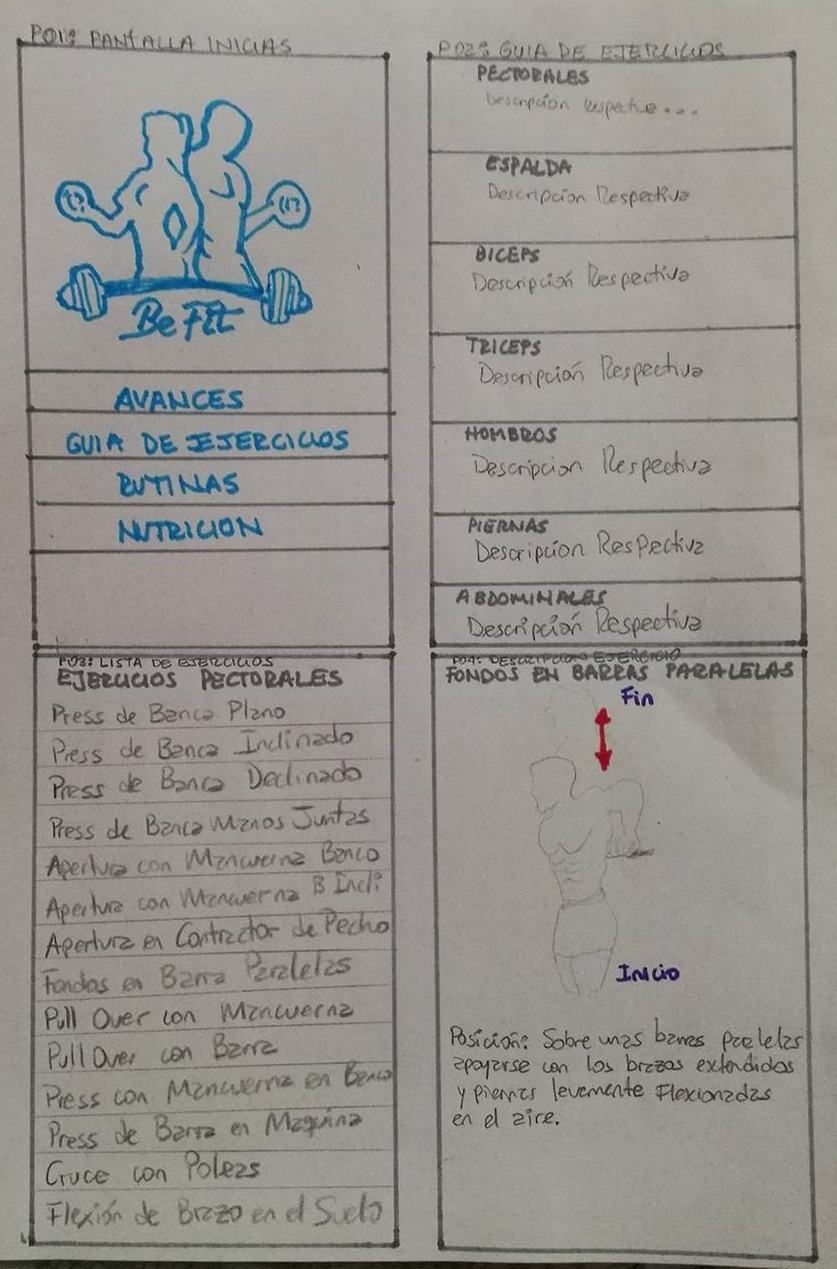 P01: PANTALLA INICIAS
Be Fit
AVANCES
GUIA DE EJERCICIOS
RUTINAS
NUTRICION
P02: GUIA DE EJERCICIOS
PECTORALES
Descripción Respective...
ESPALDA
Descripción Respectiva
BICEPS
Descripción Respectiva
TRICEPS
Descripción Respectiva
HOMBROS
Descripcion Respectiva
PIERNAS
Descripción Respectiva
ABDOMINALES
Descripción Respectiva
P03: LISTA DE EJERCICIOS
EJERCICIOS PECTORALES
Press de Banca Plano
Press de Banca Inclinado
Press de Banca Declinado
Press de Banca Manos Juntas
Apertura con Mancuerna Banco
Apertura con Mancuerna B Incli
Apertura en Contractor de Pecho
Fondos en Barra Paralelas
Pull Over con Mancuerna
Pull Over con Barra
Press con Mancuerna en Banco
Press de Barra en Maquina
Cruce con Poleas
Flexión de Brazo en el Suelo
P04: DESCRIPCION EJERCICIO
FONDOS EN BARRAS PARALELAS
Fin
Inicio
Posición: Sobre unas barras paalelas
apoyarse con los brazos extendidos
y piernas levemente Flexionadas
en el aire.